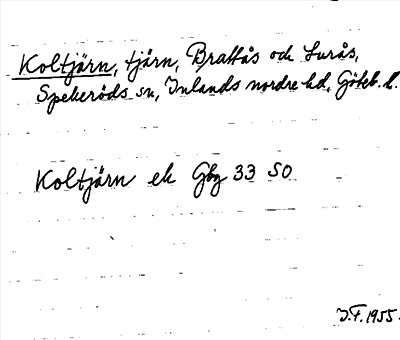 Koltjärn, tjärn, Brattås och Lurås,
Spekeröds sn, Inlands nordre hd, Göteb. l.
Koltjärn ek Gbg 33 SO
J.F. 1955.